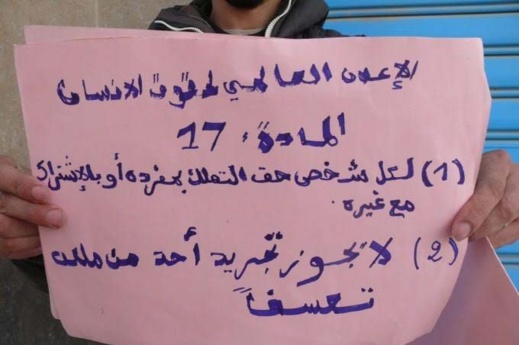 الإعلان العالمي لحقوق الانسان
المادة: 17
(1) لكل شخص حق التملك بمفرده أو بالإشتراك
مع غيره
(2) لا يجوز تجريد أحد من ملكه
تعسفاً